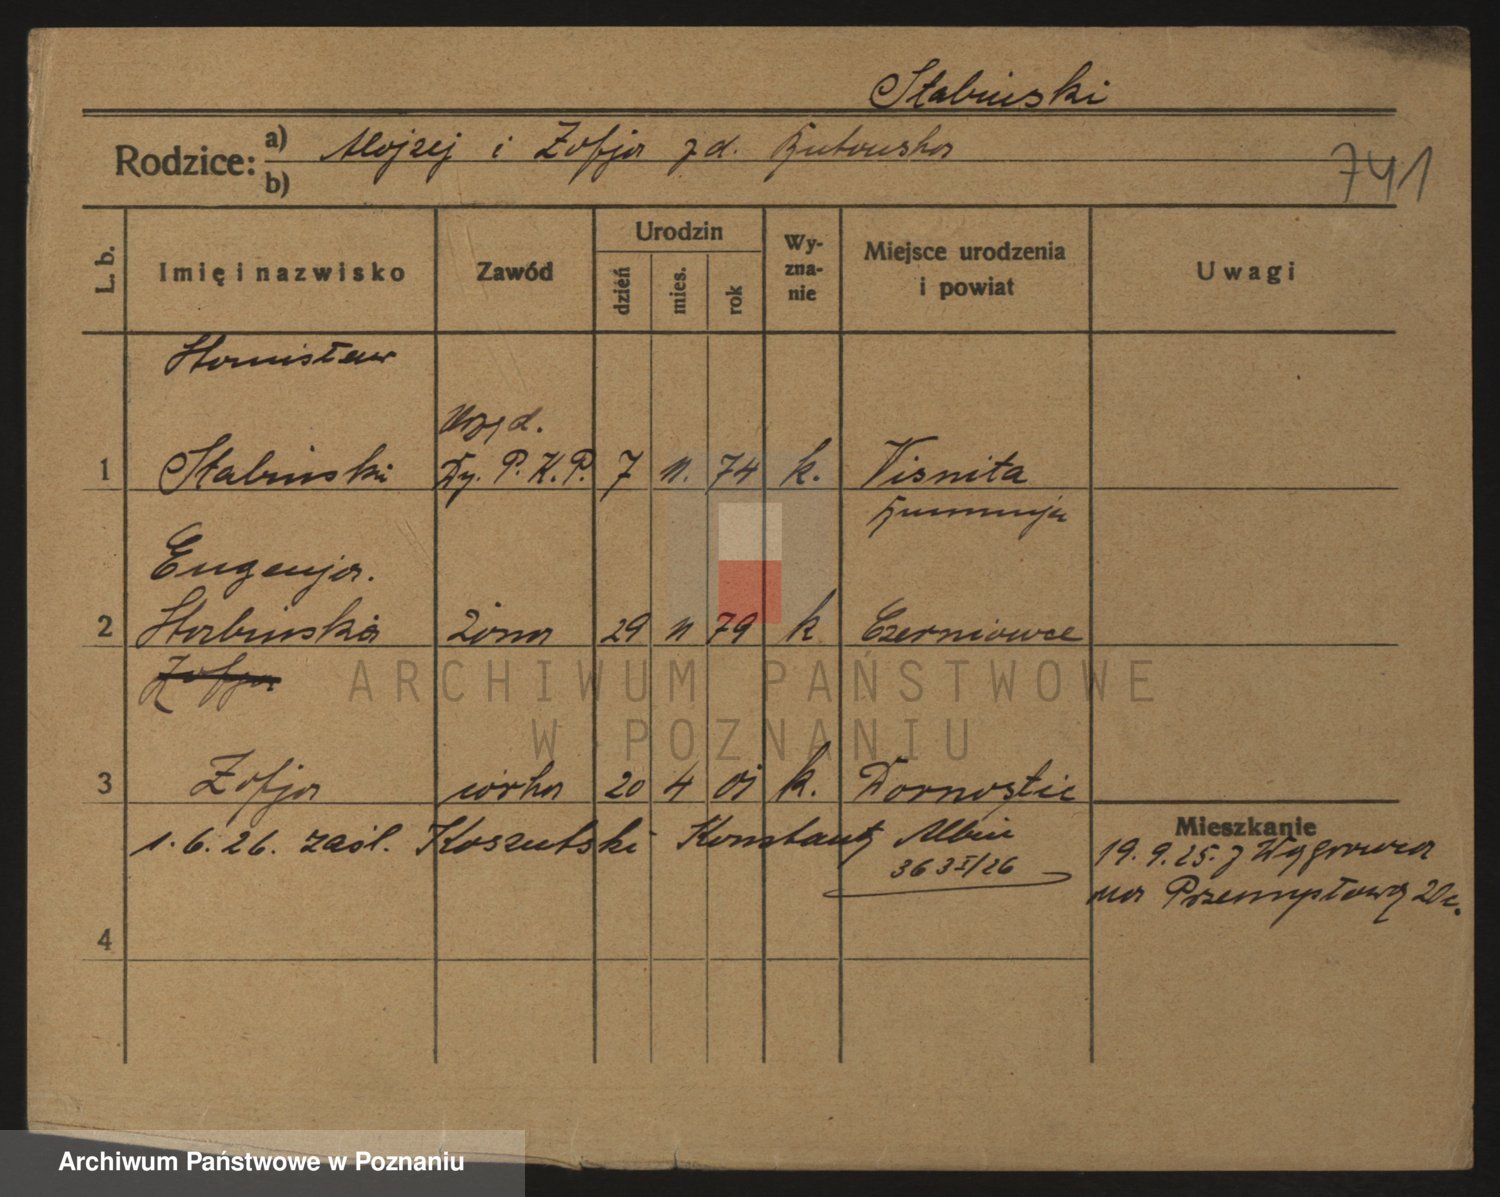 Stabinski
Rodzice: a) Alojzej i Zofja z d. Rutowska
b)
741
L. b. Imię i nazwisko Zawód Urodzin dzień mies. rok Wyznanie Miejsce urodzenia i powiat Uwagi
Stanisław
Urzęd.
1 Stabinski Dy. P. K. P. 7 11. 74 k. Visnita
Rumunja
Eugenja.
2 Stabinska żona 29 11 79 k Czerniowce
Zofja
3 Zofja córka 20 4 01 k.
1.6.26. zaśl. Koszutski Konstanty Albin
Mieszkanie
363 I/26
19.9.25. z Wągrowca
na Przemysłową 20c.
4
ARCHIWUM PAŃSTWOWE
W POZNANIU
Archiwum Państwowe w Poznaniu